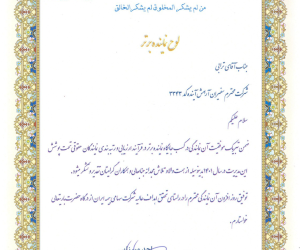 من لم یشکر المخلوق لم یشکر الخالق
لوح نماینده برتر
جناب آقای ترابی
شرکت محترم سفیران آرامش آینده کد ۳۲۴۳
سلام علیکم
ضمن تبریک موفقیت آن نمایندگی در کسب جایگاه نماینده برتر در فرآیند ارزیابی و رتبه‌بندی نمایندگان حقوقی تحت پوشش
این مدیریت در سال ۱۴۰۱ بدینوسیله از همت والا و تلاش همه جانبه شما و همکاران گرامیتان تقدیر و تشکر می‌شود.
توفیق روز افزون آن نمایندگی محترم را در راستای تحقق اهداف عالیه شرکت سهامی بیمه ایران از درگاه حضرت باریتعالی
خواستارم.